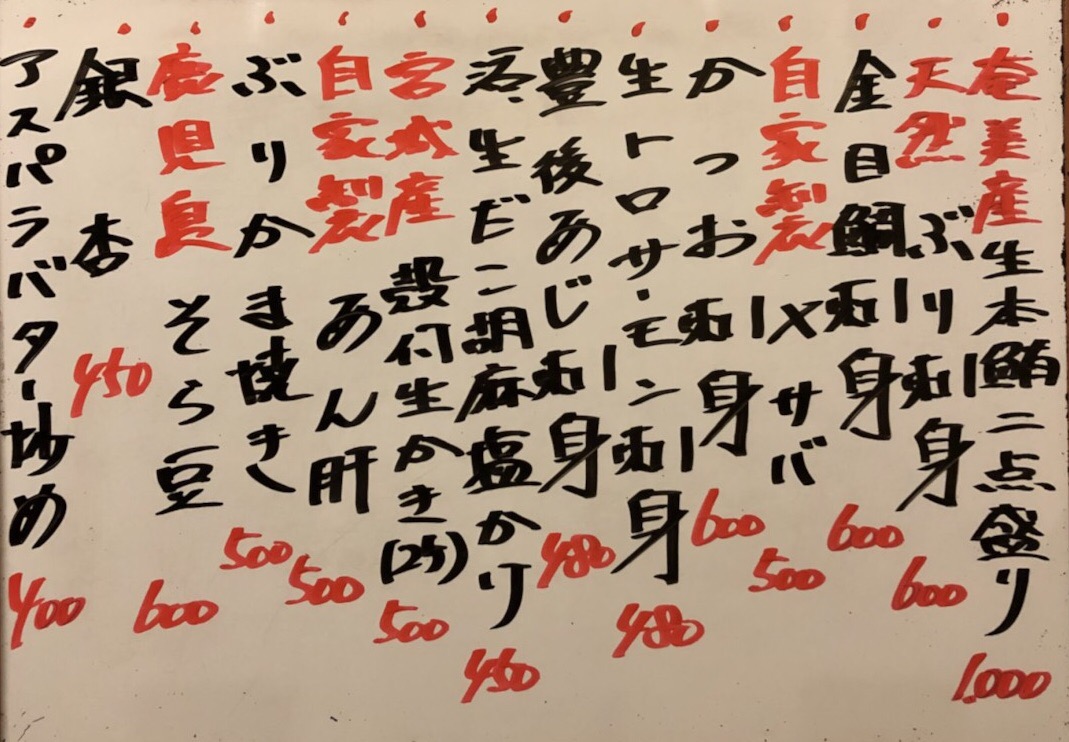 奄美産生本鮪二点盛り 1.000
天然ぶり刺身 600
金目鯛刺身 600
自家製〆サバ 500
かつお刺身 600
生トロサーモン刺身 480
豊後あじ刺身 480
生だこ胡麻塩かり 450
宮城産殻付生かき(2ケ) 500
自家製あん肝 500
ぶりかま焼き 500
鹿児島そら豆 600
銀杏 450
アスパラバター炒め 400